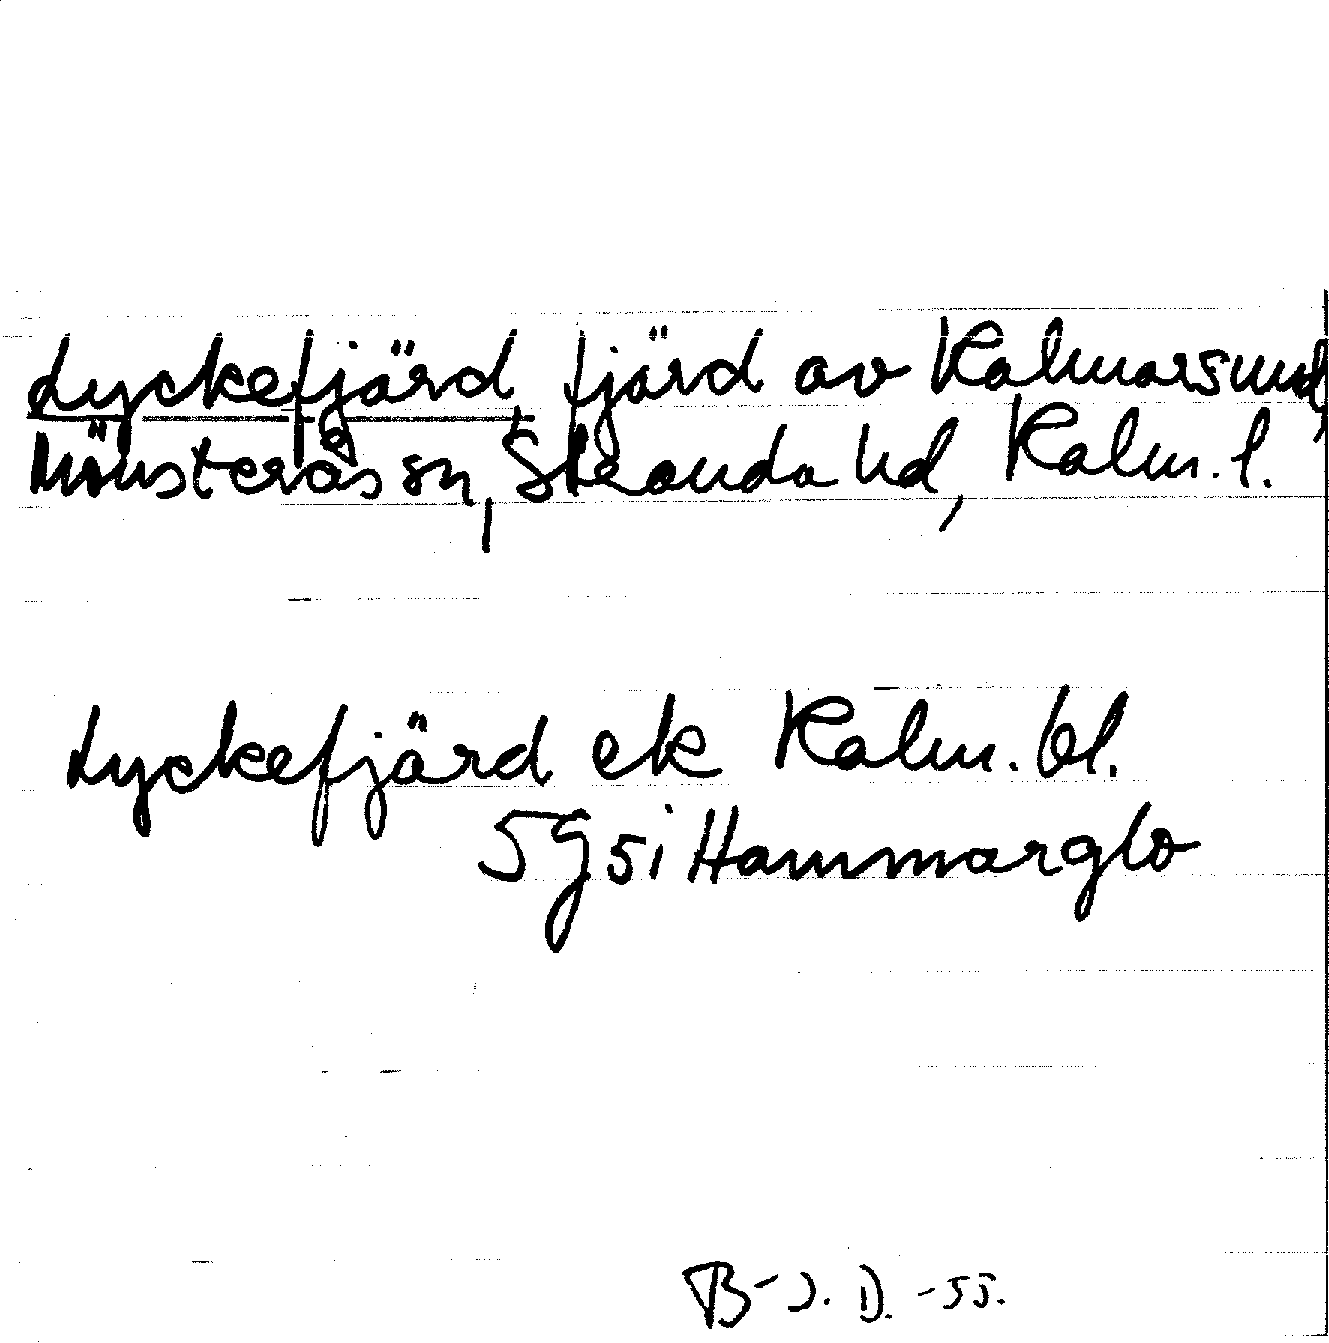 Lyckefjärd, fjärd av Kalmarsund,
Mönsterås sn, Stranda hd, Kalm. l.
Lyckefjärd ek Kalm. bl.
5 g 5 i Hammarglo
B-J. D. -55.